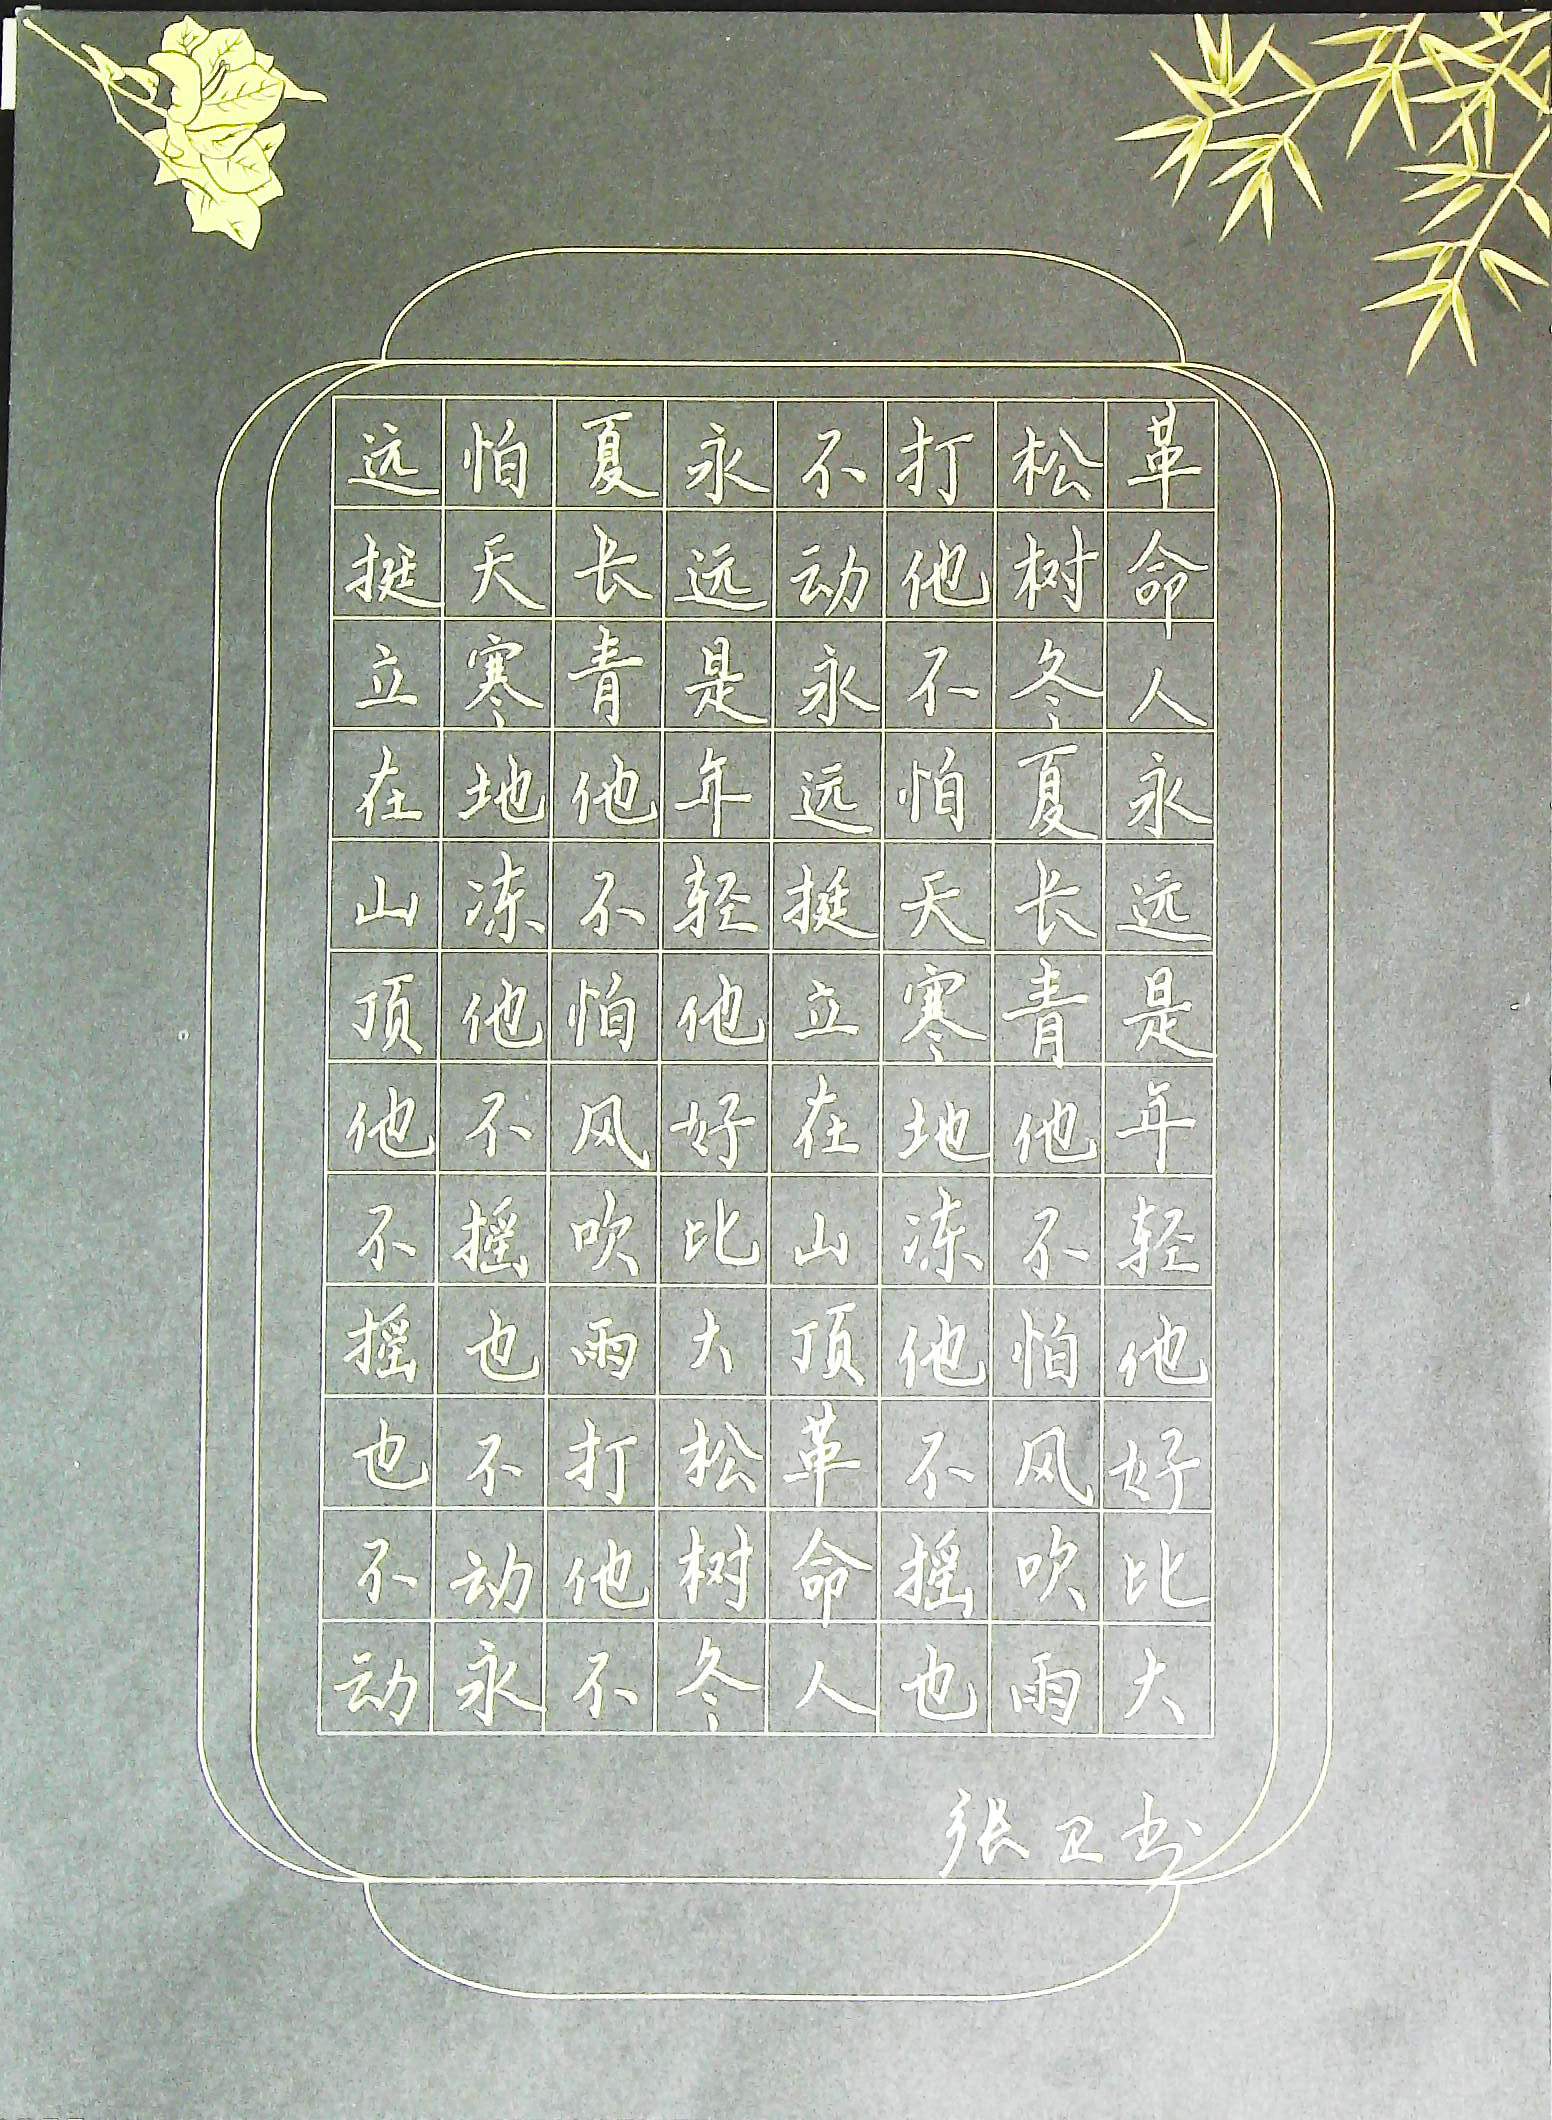 革命人永远是年轻他好比大
松树冬夏长青他不怕风吹雨
打他不怕天寒地冻他不摇也
不动永远挺立在山顶革命人
永远是年轻他好比大松树冬
夏长青他不怕风吹雨打他不
怕天寒地冻他不摇也不动永
远挺立在山顶他不摇也不动
张卫书